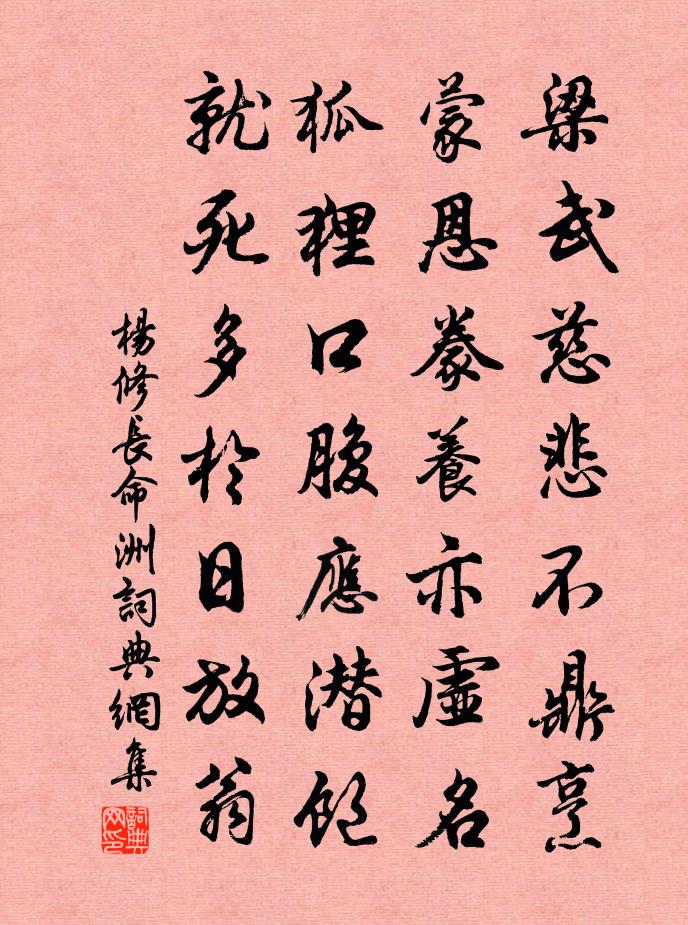 梁武慈悲不鼎烹
蒙恩豢養亦虛名
狐狸口腹應潜飽
就死多於日放翁
楊修長命洲詞典網集
詞典网印